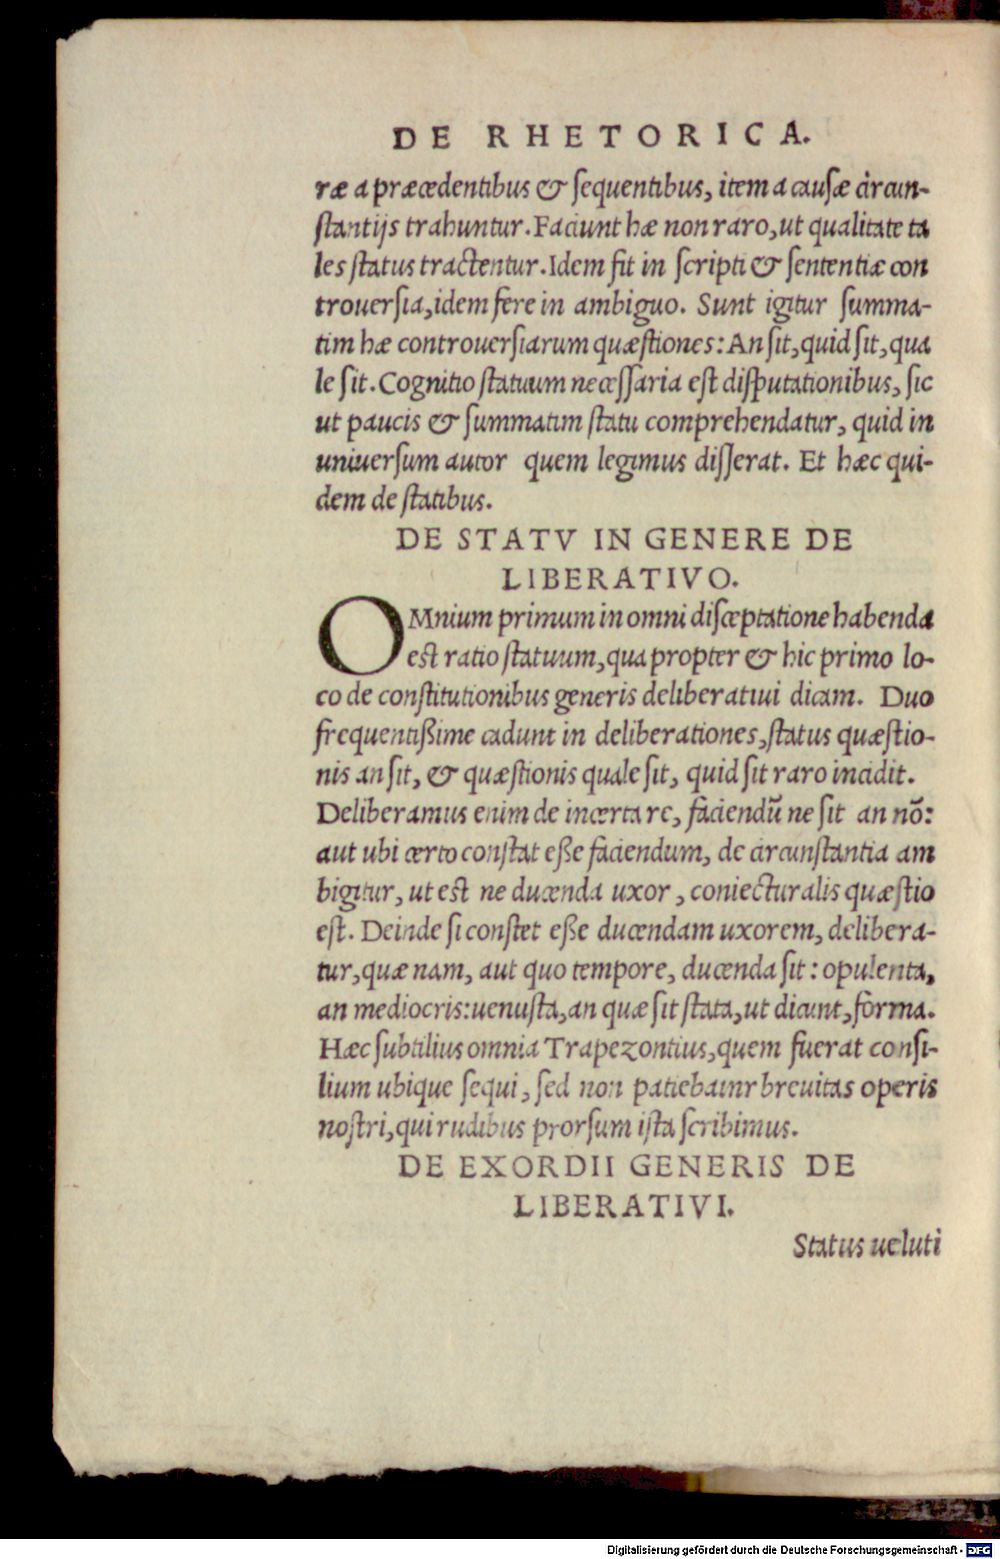 DE RHETORICA.
ræ a præcedentibus & sequentibus, item a causæ circun-
stantijs trahuntur. Faciunt hæ non raro, ut qualitate ta
les status tractentur. Idem fit in scripti & sententiæ con
trouersia, idem fere in ambiguo. Sunt igitur summa-
tim hæ controuersiarum quæstiones: An sit, quid sit, qua
le sit. Cognitio statuum necessaria est disputationibus, sic
ut paucis & summatim statu comprehendatur, quid in
uniuersum autor quem legimus disserat. Et hæc qui-
dem de statibus.
DE STATV IN GENERE DE
LIBERATIVO.
OMnium primum in omni disceptatione habenda
est ratio statuum, qua propter & hic primo lo-
co de constitutionibus generis deliberatiui dicam. Duo
frequentißime cadunt in deliberationes, status quæstio-
nis an sit, & quæstionis quale sit, quid sit raro incidit.
Deliberamus enim de incerta re, faciendū ne sit an nō:
aut ubi certo constat eße faciendum, de circunstantia am
bigitur, ut est ne ducenda uxor, coniecturalis quæstio
est. Deinde si constet eße ducendam uxorem, delibera-
tur, quæ nam, aut quo tempore, ducenda sit: opulenta,
an mediocris: uenusta, an quæ sit stata, ut dicunt, forma.
Hæc subtilius omnia Trapezontius, quem fuerat consi-
lium ubique sequi, sed non patiebatur breuitas operis
nostri, qui rudibus prorsum ista scribimus.
DE EXORDII GENERIS DE
LIBERATIVI.
Status ueluti
Digitalisierung gefördert durch die Deutsche Forschungsgemeinschaft - DFG